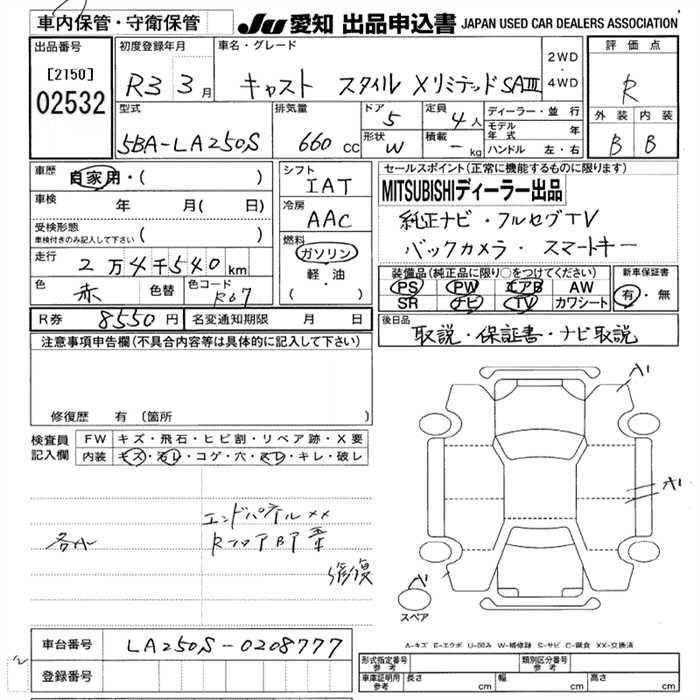 車内保管・守衛保管
JU 愛知 出品申込書 JAPAN USED CAR DEALERS ASSOCIATION
出品番号
[2150]
02532
初度登録年月
R3 3月
車名・グレード
キャスト スタイル Xリミテッド SAIII
2WD
・
4WD
評価点
R
外装 内装
B B
型式
5BA-LA250S
排気量
660 cc
ドア 5
形状 W
定員 4人
積載 - kg
ディーラー・並行
モデル年式 年
ハンドル 左・右
車歴
自家用・( )
車検 年 月( 日)
受検形態
車検付きのみ記入して下さい ( )
走行 2万4千540km
色 赤
色替
色コード R67
シフト
IAT
冷房
AAC
燃料
ガソリン
軽・油
( )
セールスポイント(正常に機能するものに限ります)
MITSUBISHIディーラー出品
純正ナビ・フルセグTV
バックカメラ・スマートキー
装備品(純正品に限り○をつけてください)
PS PW エアB AW
SR ナビ TV カワシート
新車保証書
有・無
R券 8550円
名変通知期限 月 日
後日品
取説・保証書・ナビ取説
注意事項申告欄(不具合内容等は具体的に記入して下さい)
修復歴 有(箇所 )
検査員記入欄
FW キズ・飛石・ヒビ割・リペア跡・X要
内装 キズ・汚レ・コゲ・穴・スレ・キレ・破レ
エンドパネル××
各A
RフロアBP
修復
A1
A1
A1
スペア
A-キズ E-エクボ U-凹み W-補修跡 S-サビ C-腐食 XX-交換済
車台番号 LA250S-0208777
登録番号
形式指定番号 参考
類別区分番号 参考
車庫証明用 参考 長さ cm 幅 cm 高さ cm